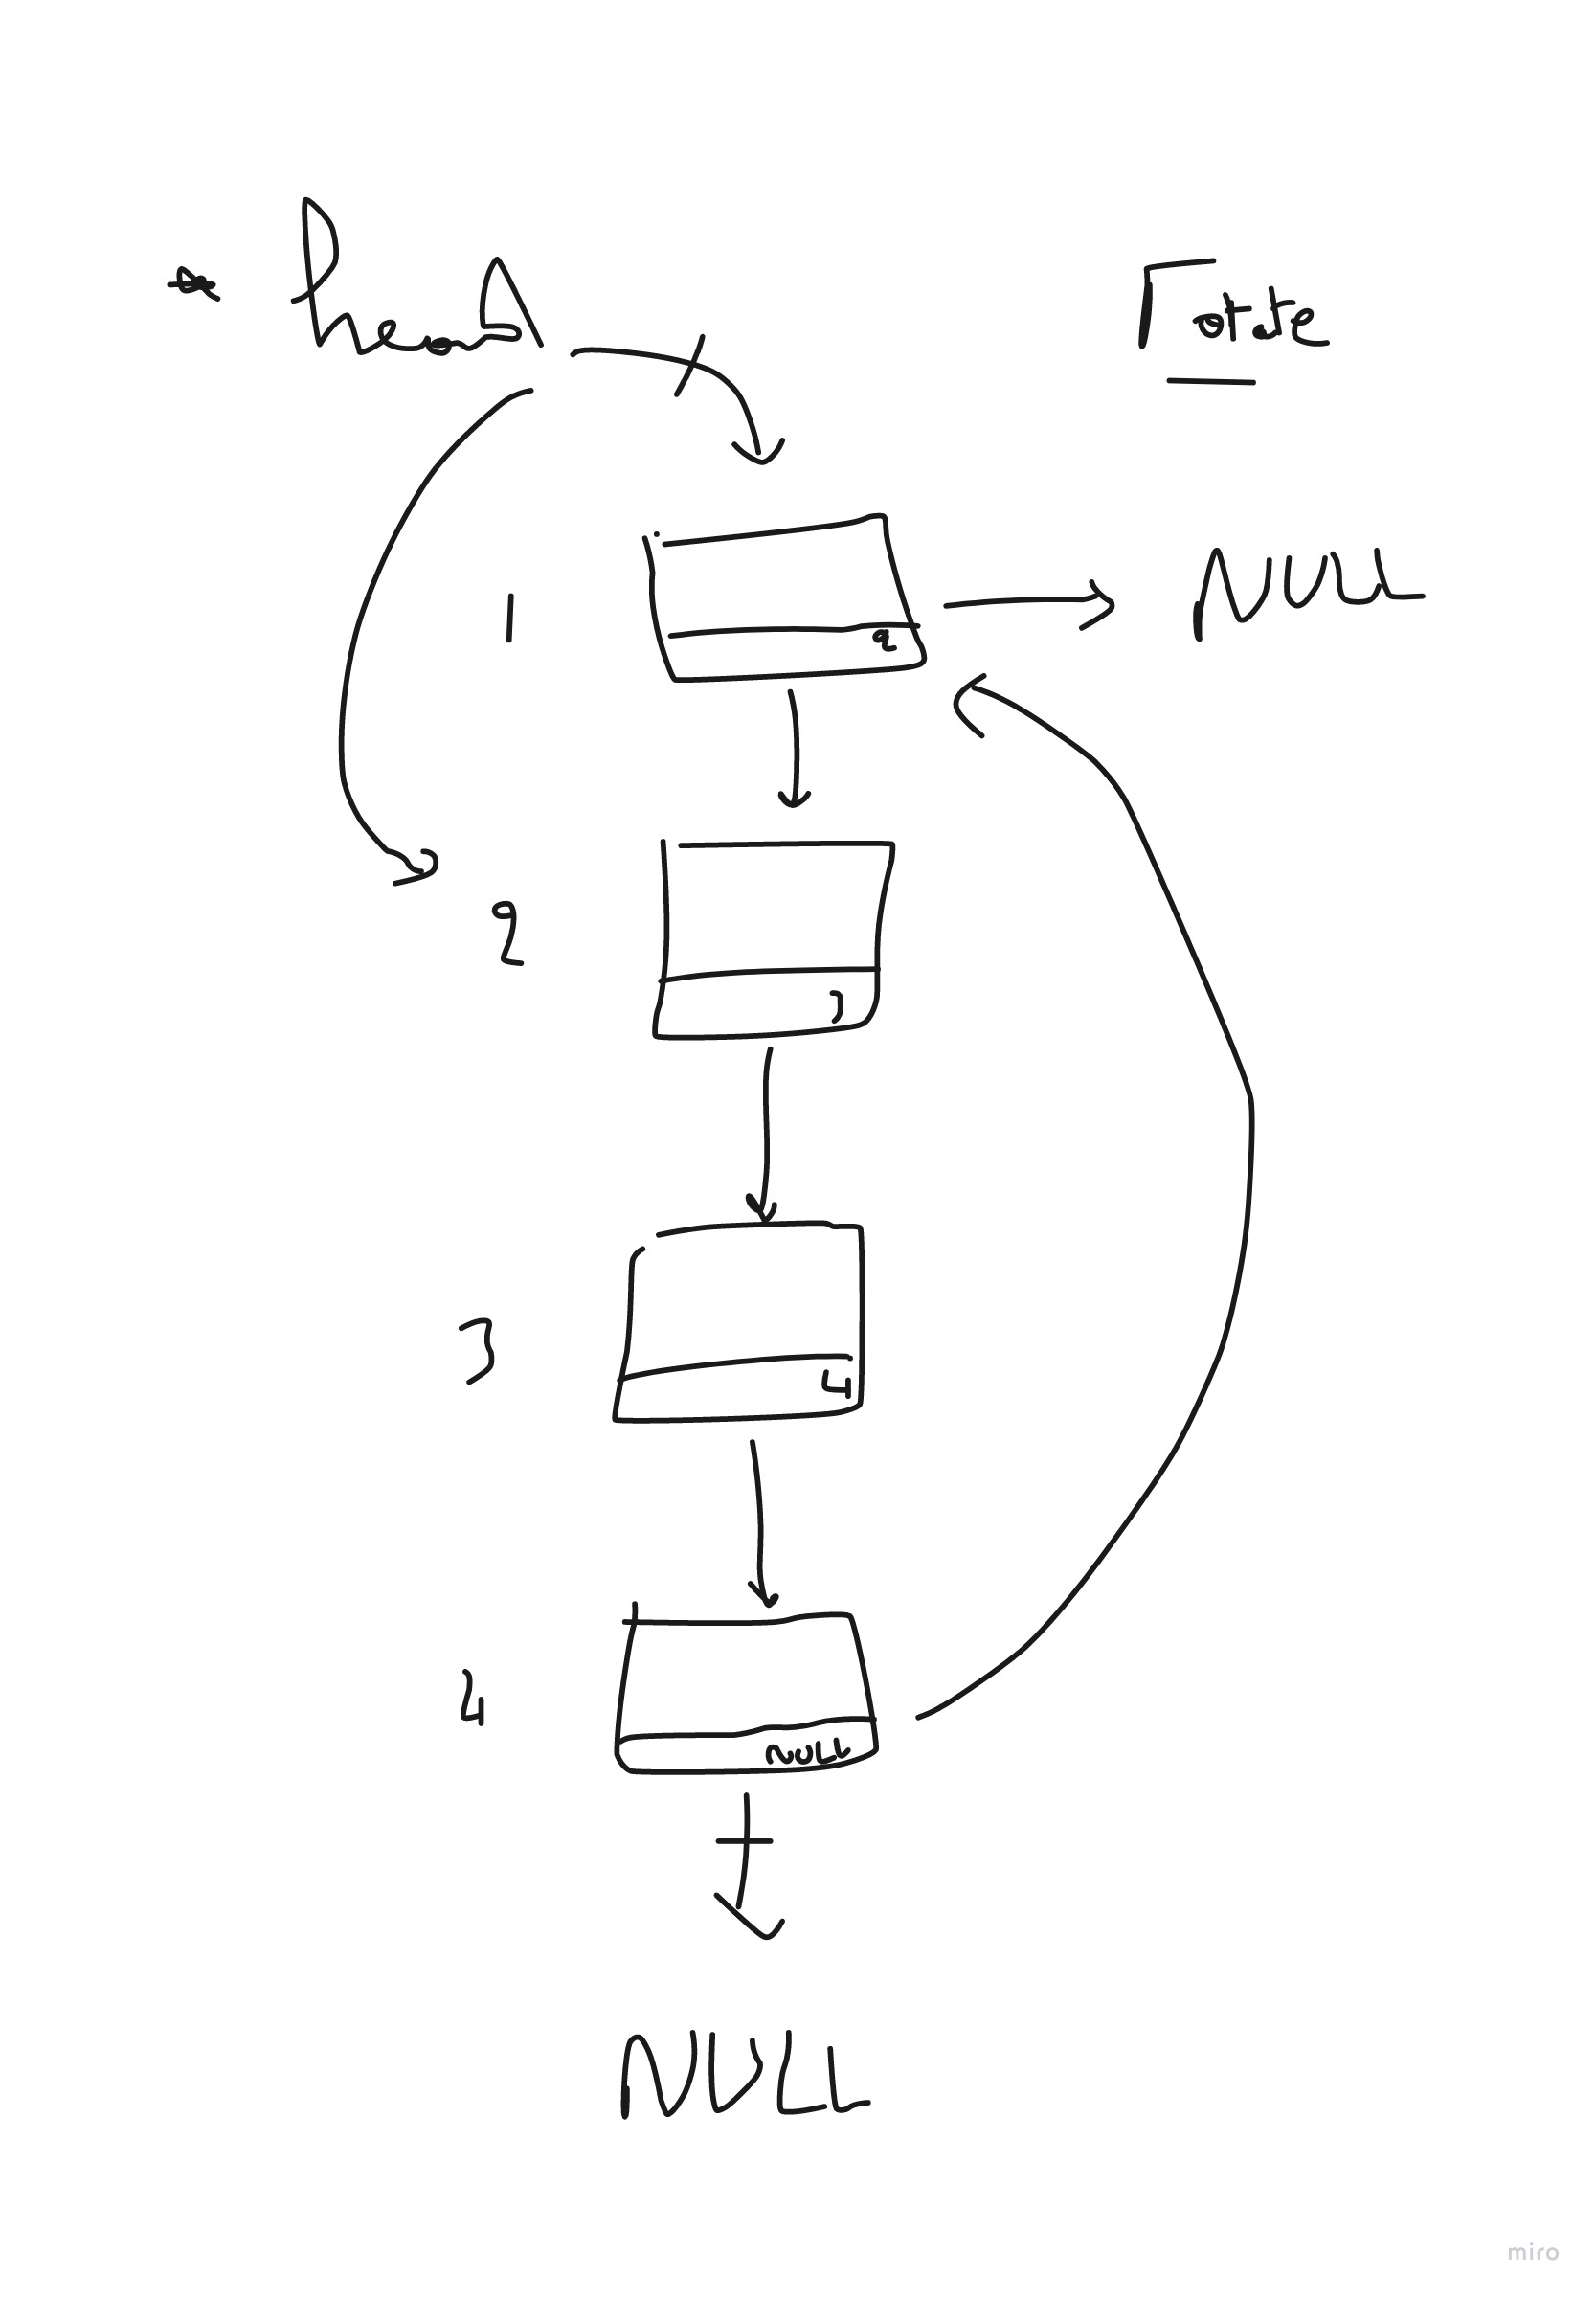 * head
rotate
1
NULL
2
2
3
3
4
4
NULL
NULL
miro